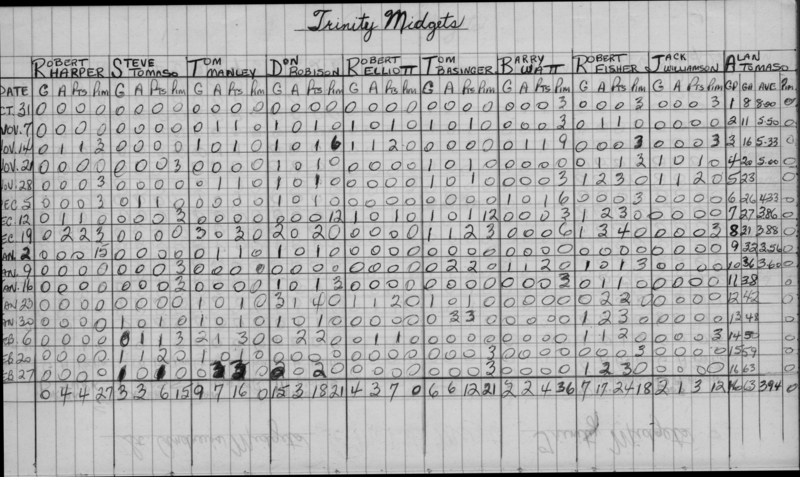 Trinity Midgets
ROBERT HARPER STEVE TOMASO TOM MANLEY DON ROBISON ROBERT ELLIOTT TOM BASINGER BARRY WATT ROBERT FISHER JACK WILLIAMSON ALAN TOMASO
DATE G A Pts Pim G A Pts Pim G A Pts Pim G A Pts Pim G A Pts Pim G A Pts Pim G A Pts Pim G A Pts Pim G A Pts Pim GP GA AVE. Pim
CT. 31 0 0 0 0 0 0 0 0 0 0 0 0 0 0 0 0 0 0 0 0 0 0 0 0 0 0 0 3 0 0 0 3 0 0 0 3 1 8 8.00 0
NOV. 7 0 0 0 0 0 0 0 0 0 1 1 0 1 0 1 0 1 0 1 0 1 0 1 0 0 0 0 3 0 1 1 0 0 0 0 0 2 11 5.50 0
OV. 14 0 1 1 3 0 0 0 0 1 0 1 0 1 0 1 6 1 1 2 0 0 0 0 0 0 1 1 9 0 0 0 3 0 0 0 3 3 16 5.33 0
OV. 21 0 0 0 0 0 0 0 3 0 0 0 0 1 0 1 0 0 0 0 0 1 0 1 0 0 0 0 0 0 1 1 3 1 0 1 0 4 20 5.00 0
OV. 28 0 0 0 3 0 0 0 0 0 1 1 0 1 0 1 0 0 0 0 0 1 0 1 0 0 0 0 3 1 2 3 0 1 1 2 0 5 23
EC. 5 0 0 0 3 0 1 1 0 0 0 0 0 1 0 1 0 0 0 0 0 0 0 0 0 1 0 1 6 0 0 0 3 0 0 0 0 6 26 4.33 0
EC. 12 0 1 1 0 0 0 0 3 0 0 0 0 0 0 0 12 1 0 1 0 1 0 1 12 0 0 0 3 1 2 3 0 0 0 0 0 7 27 3.86 0
EC. 19 0 2 2 3 0 0 0 0 3 0 3 0 2 0 2 0 0 0 0 0 1 1 2 3 0 0 0 6 1 3 4 0 0 0 0 0 8 31 3.88 0
AN. 2 0 0 0 15 0 0 0 0 0 1 1 0 1 0 1 0 0 0 0 0 0 0 0 0 0 0 0 0 0 0 0 0 0 0 0 0 9 32 3.56 0
AN. 9 0 0 0 0 0 0 0 3 0 0 0 0 0 0 0 0 0 0 0 0 0 2 2 0 1 1 2 0 1 0 1 3 0 0 0 0 10 36 3.60 0
AN. 16 0 0 0 0 0 0 0 3 0 0 0 0 1 0 1 3 0 0 0 0 0 0 0 0 0 0 0 3 0 1 1 0 0 0 0 0 11 38
AN 23 0 0 0 0 0 0 0 0 1 0 1 0 3 1 4 0 1 1 2 0 1 0 1 0 0 0 0 0 0 2 2 0 0 0 0 0 12 42
AN 30 0 0 0 0 1 0 1 0 1 0 1 0 1 0 1 0 0 0 0 0 0 3 3 0 0 0 0 0 1 2 3 0 0 0 0 0 13 48
EB. 6 0 0 0 0 0 1 1 3 2 1 3 0 0 2 2 0 0 1 1 0 0 0 0 0 1 1 2 0 0 0 0 3 14 50
EB 20 0 0 0 0 1 1 2 0 0 0 0 3 0 0 0 3 0 0 0 0 15 59
EB 27 0 0 0 0 1 0 1 0 0 3 3 0 2 0 2 0 0 0 0 3 1 2 3 0 0 0 0 0 16 63
0 4 4 27 3 3 6 15 9 7 16 0 15 3 18 21 4 3 7 0 6 6 12 21 2 2 4 36 7 17 24 18 2 1 3 12 16 63 3.94 0